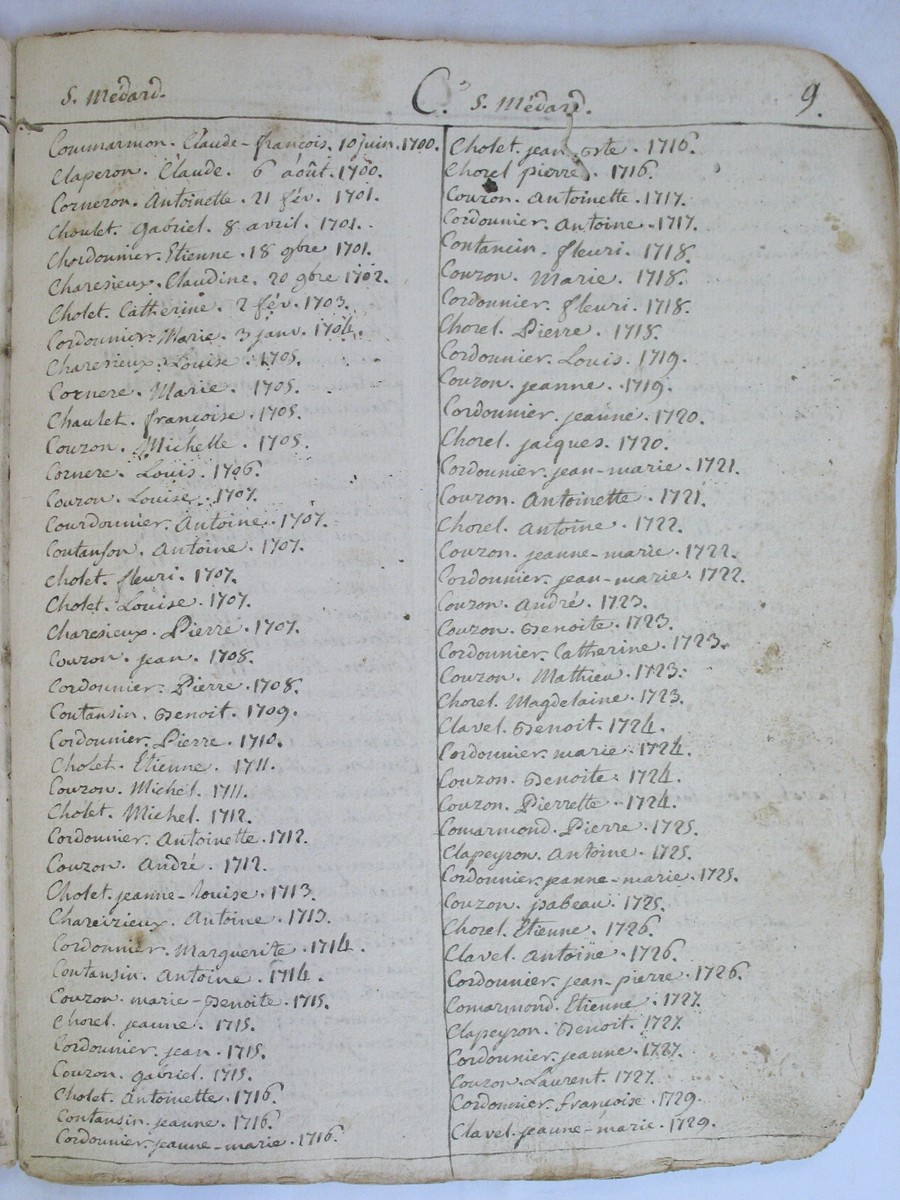 S. Médard.
C.
S. Médard.
9.
Coumarmon. Claude-françois. 10 juin. 1700.
Claperon. Claude. 6 août. 1700.
Corneron. Antoinette. 21 fév. 1701.
Choulet. gabriel. 8 avril. 1701.
Chordonnier. Etienne. 18 9bre 1701.
Charesieux. Claudine. 20 9bre 1702.
Cholet. Catherine. 2 fév. 1703.
Cordounier. Marie. 3 janv. 1704.
Charesieux. Louise. 1705.
Cornere. Marie. 1705.
Chaulet. françoise. 1705.
Couzon. Michelle. 1705.
Cornere. Louis. 1706.
Couzon. Louise. 1707.
Courdounier. Antoine. 1707.
Coutanson. Antoine. 1707.
Cholet. fleuri. 1707.
Cholet. Louise. 1707.
Charesieux. Pierre. 1707.
Couzon. jean. 1708.
Cordounier. Pierre. 1708.
Coutansin. Benoit. 1709.
Cordounier. Pierre. 1710.
Cholet. Etienne. 1711.
Couzon. Michel. 1711.
Cholet. Michel. 1712.
Cordounier. Antoinette. 1712.
Couzon. André. 1712.
Cholet. jeanne-Louise. 1713.
Chareizieux. Antoine. 1713.
Cordonnier. Marguerite. 1714.
Coutansin. Antoine. 1714.
Couzon. marie-Benoite. 1715.
Chorel. jeanne. 1715.
Cordounier. jean. 1715.
Couzon. gabriel. 1715.
Cholet. Antoinette. 1716.
Contansin. jeanne. 1716.
Cordounier. jeanne-marie. 1716.
Cholet. jean. 1716.
Chorel pierre. 1716.
Couzon. Antoinette. 1717.
Cordounier. Antoine. 1717.
Contancin. fleuri. 1718.
Couzon. Marie. 1718.
Cordonnier. fleuri. 1718.
Chorel. Pierre. 1718.
Cordonnier. Louis. 1719.
Couzon. jeanne. 1719.
Cordonnier. jeanne. 1720.
Chorel. jacques. 1720.
Cordounier. jean-marie. 1721.
Couzon. Antoinette. 1721.
Chorel. Antoine. 1722.
Couzon. jeanne-marie. 1722.
Cordonnier. jean-marie. 1722.
Couzon. André. 1723.
Couzon. Benoite. 1723.
Cordounier. Catherine. 1723.
Couzon. Mathieu. 1723.
Chorel. Magdelaine. 1723.
Clavel. Benoit. 1724.
Cordonnier. marie. 1724.
Couzon. Benoite. 1724.
Couzon. Pierrette. 1724.
Comarmond. Pierre. 1725.
Clapeyron. Antoine. 1725.
Cordonnier. jeanne-marie. 1725.
Couzon. isabeau. 1725.
Chorel. Etienne. 1726.
Clavel. Antoine. 1726.
Cordounier. jean-pierre. 1726.
Comarmond. Etienne. 1727.
Clapeyron. Benoit. 1727.
Cordounier. jeanne. 1727.
Couzon. Laurent. 1727.
Cordonnier. françoise. 1729.
Clavel. jeanne-marie. 1729.